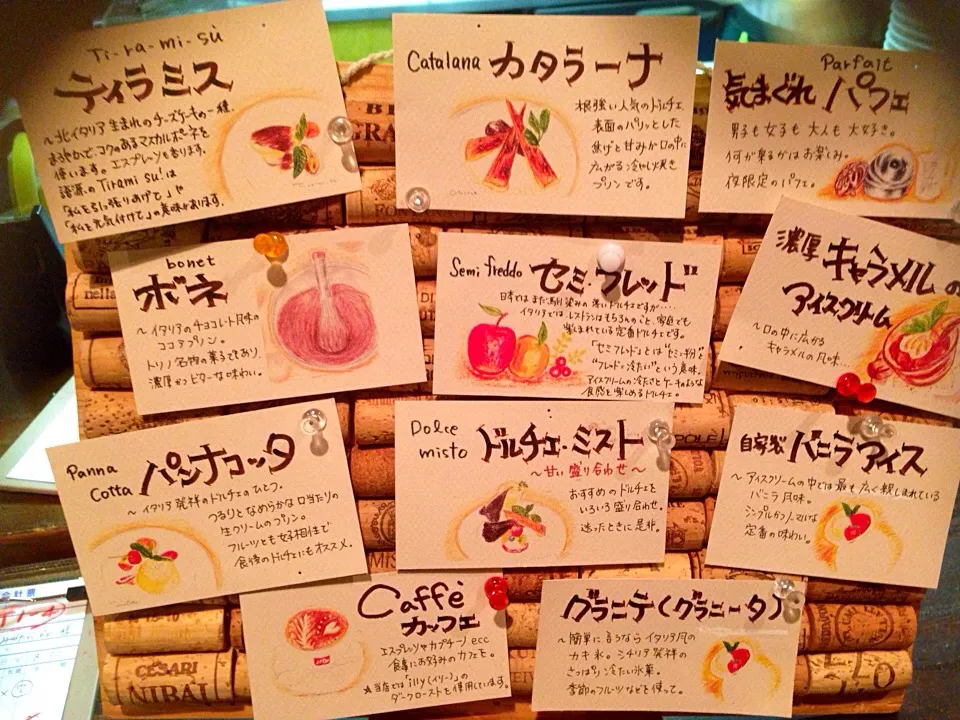 Ti-ra-mi-sù
ティラミス
～北イタリア生まれのチーズケーキの一種。
まろやかで、コクのあるマスカルポーネを
使います。エスプレッソも香ります。
語源のTirami su!は
「私を引っ張りあげて」や
「私を元気付けて」の意味があります。
Catalana カタラーナ
根強い人気のドルチェ
表面のパリッとした
焦げと甘みが口の中に
広がる冷やし焼き
プリンです。
Parfait
気まぐれ パフェ
男子も女子も大人も大好き。
何が乗るかはお楽しみ。
夜限定のパフェ。
bonet
ボネ
～イタリアのチョコレート風味の
ココアプリン。
トリノ名物の菓子であり、
濃厚かつビターな味わい。
Semi freddo セミ・フレッド
日本ではまだ馴染みの薄いドルチェですが....
イタリアでは、レストランはもちろんのこと、家庭でも
楽しまれている定番ドルチェです。
「セミフレッド」とは"セミ=半分"
"フレッド=冷たい"という意味。
アイスクリームの冷たさとケーキのような
食感を楽しめるドルチェ。
濃厚 キャラメルの
アイスクリーム
～口の中に広がる
キャラメルの風味...
Panna
Cotta パンナコッタ
～イタリア発祥のドルチェのひとつ。
つるりとなめらかな口当たりの
生クリームのプリン。
フルーツとも好相性で
食後のドルチェにもオススメ。
Dolce
misto ドルチェ・ミスト
～甘い盛り合わせ～
おすすめのドルチェを
いろいろ盛り合わせ。
迷ったときに是非。
自家製 バニラアイス
～アイスクリームの中では最も広く親しまれている
バニラ風味。
シンプルかつノーマルな
定番の味わい。
Caffè
カッフェ
エスプレッソやカプチーノ ecc
食事にお好みのカフェを。
※当店では「illy(イリー)」の
ダークローストを使用しています。
グラニテ(グラニータ)
～簡単に言うならイタリア風の
カキ氷。シチリア発祥の
さっぱり冷たい氷菓。
季節のフルーツなどを使って。
CESARI